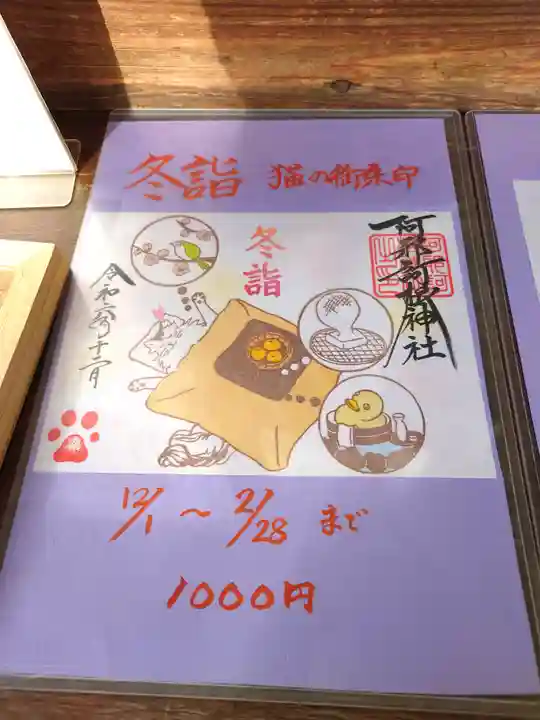 冬詣 猫の御朱印
冬詣
阿邪訶根神社
令和六年十二月
12/1 〜 2/28 まで
1000円